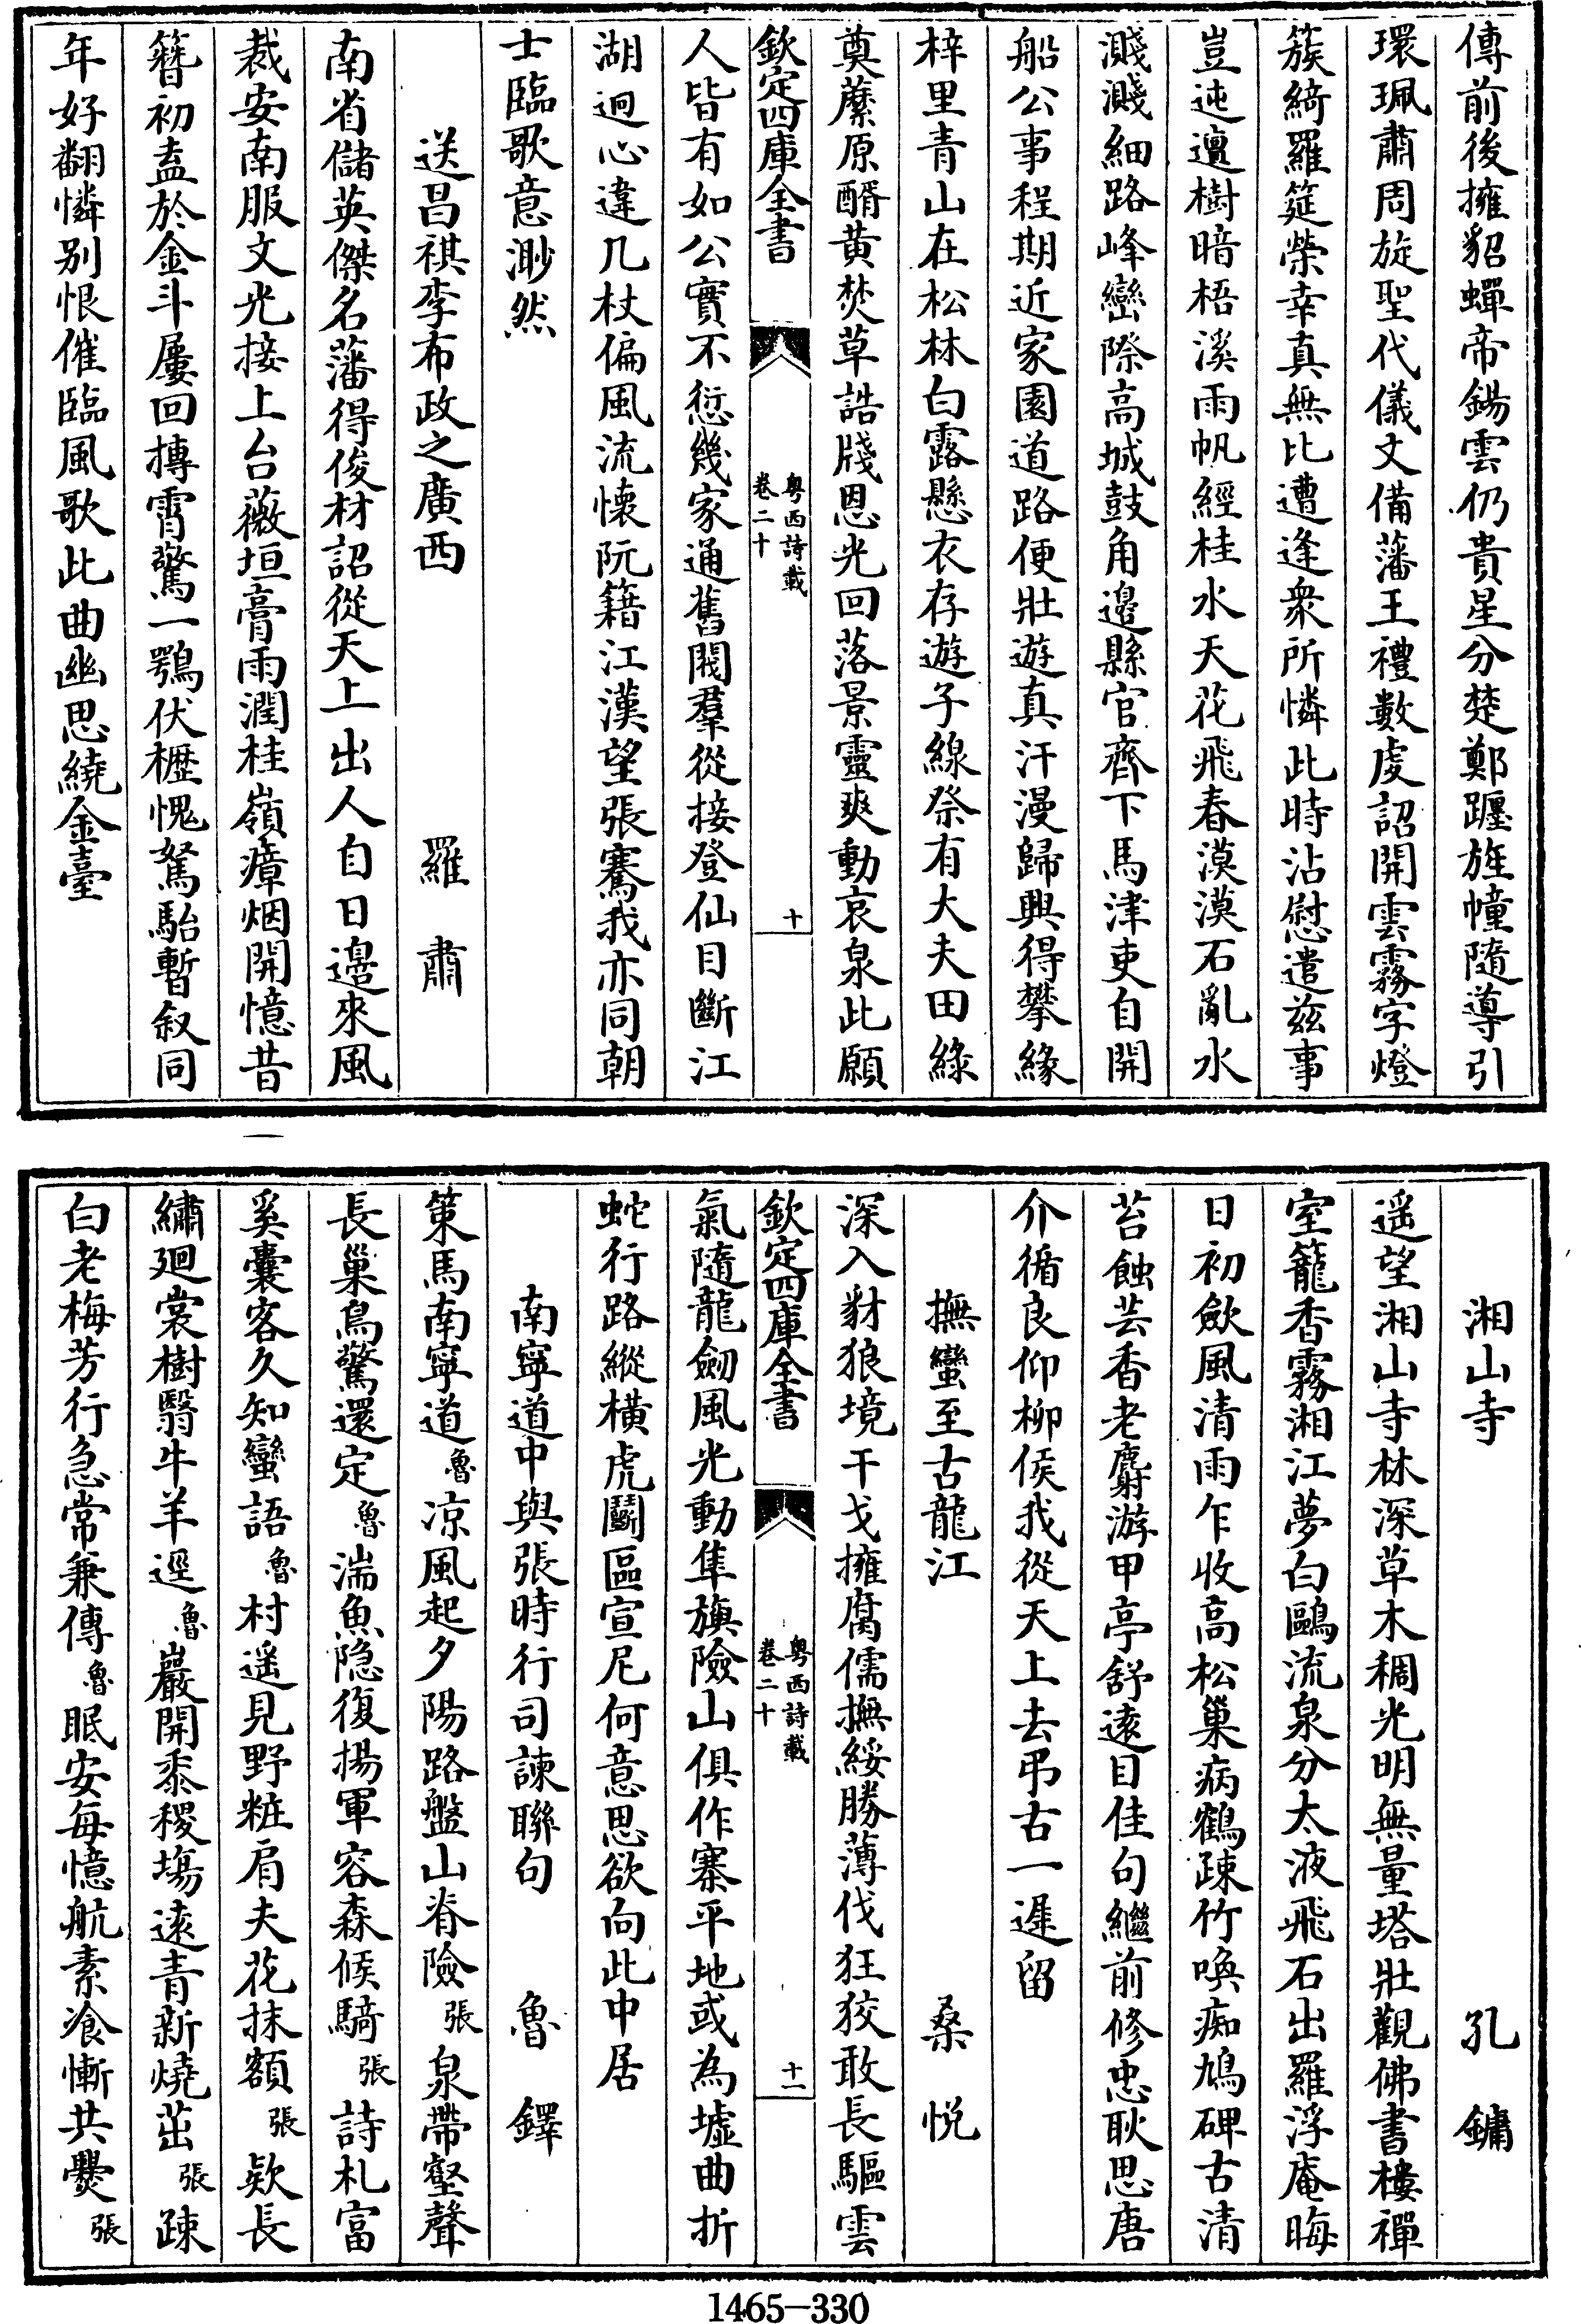 傳前後擁貂蟬帝錫雲仍貴星分楚鄭躔旌幢隨導引
環珮肅周旋聖代儀文備藩王禮數虔詔開雲霧字燈
簇綺羅筵榮幸真無比遭逢衆所憐此時沾慰遣兹事
豈迍邅樹暗梧溪雨帆經桂水天花飛春漠漠石亂水
濺濺細路峰巒際高城鼓角邉縣官齊下馬津吏自開
船公事程期近家園道路便壯遊真汗漫歸興得攀緣
梓里青山在松林白露懸衣存遊子線祭有大夫田綠
奠蘪原醑黄焚草誥牋恩光回落景靈爽動哀泉此願
欽定四庫全書
粤西詩載
卷二十
十
人皆有如公實不愆幾家通舊閥羣從接登仙目斷江
湖迥心違几杖偏風流懷阮籍江漢望張騫我亦同朝
士臨歌意渺然
送昌祺李布政之廣西
羅肅
南省儲英傑名藩得俊材詔從天上出人自日邉來風
裁安南服文光接上台薇垣膏雨潤桂嶺瘴烟開憶昔
簪初盍於金斗屢回摶霄驚一鶚伏櫪愧駑駘暫叙同
年好翻憐别恨催臨風歌此曲幽思繞金臺
湘山寺
孔鏞
遥望湘山寺林深草木稠光明無量塔壯觀佛書樓禪
室籠香霧湘江夢白鷗流泉分太液飛石出羅浮庵晦
日初斂風清雨乍收高松巢病鶴疎竹喚痴鳩碑古清
苔蝕芸香老麝游甲亭舒遠目佳句繼前修忠耿思唐
介循良仰柳侯我從天上去弔古一遲留
撫蠻至古龍江
桑悦
深入豺狼境干戈擁腐儒撫綏勝薄伐狂狡敢長驅雲
欽定四庫全書
粤西詩載
卷二十
十一
氣隨龍劒風光動隼旟險山俱作寨平地或為墟曲折
蛇行路縱横虎鬭區宣尼何意思欲向此中居
南寧道中與張時行司諫聯句
魯鐸
策馬南寧道魯凉風起夕陽路盤山脊險張泉帶壑聲
長巢鳥驚還定魯湍魚隐復揚軍容森候騎張詩札富
奚囊客久知蠻語魯村遥見野粧肩夫花抹額張歎長
繡廻裳樹翳牛羊逕魯巖開黍稷塲遠青新燒茁張疎
白老梅芳行急常兼傳魯眠安每憶航素飡慚共爨張
1465—330